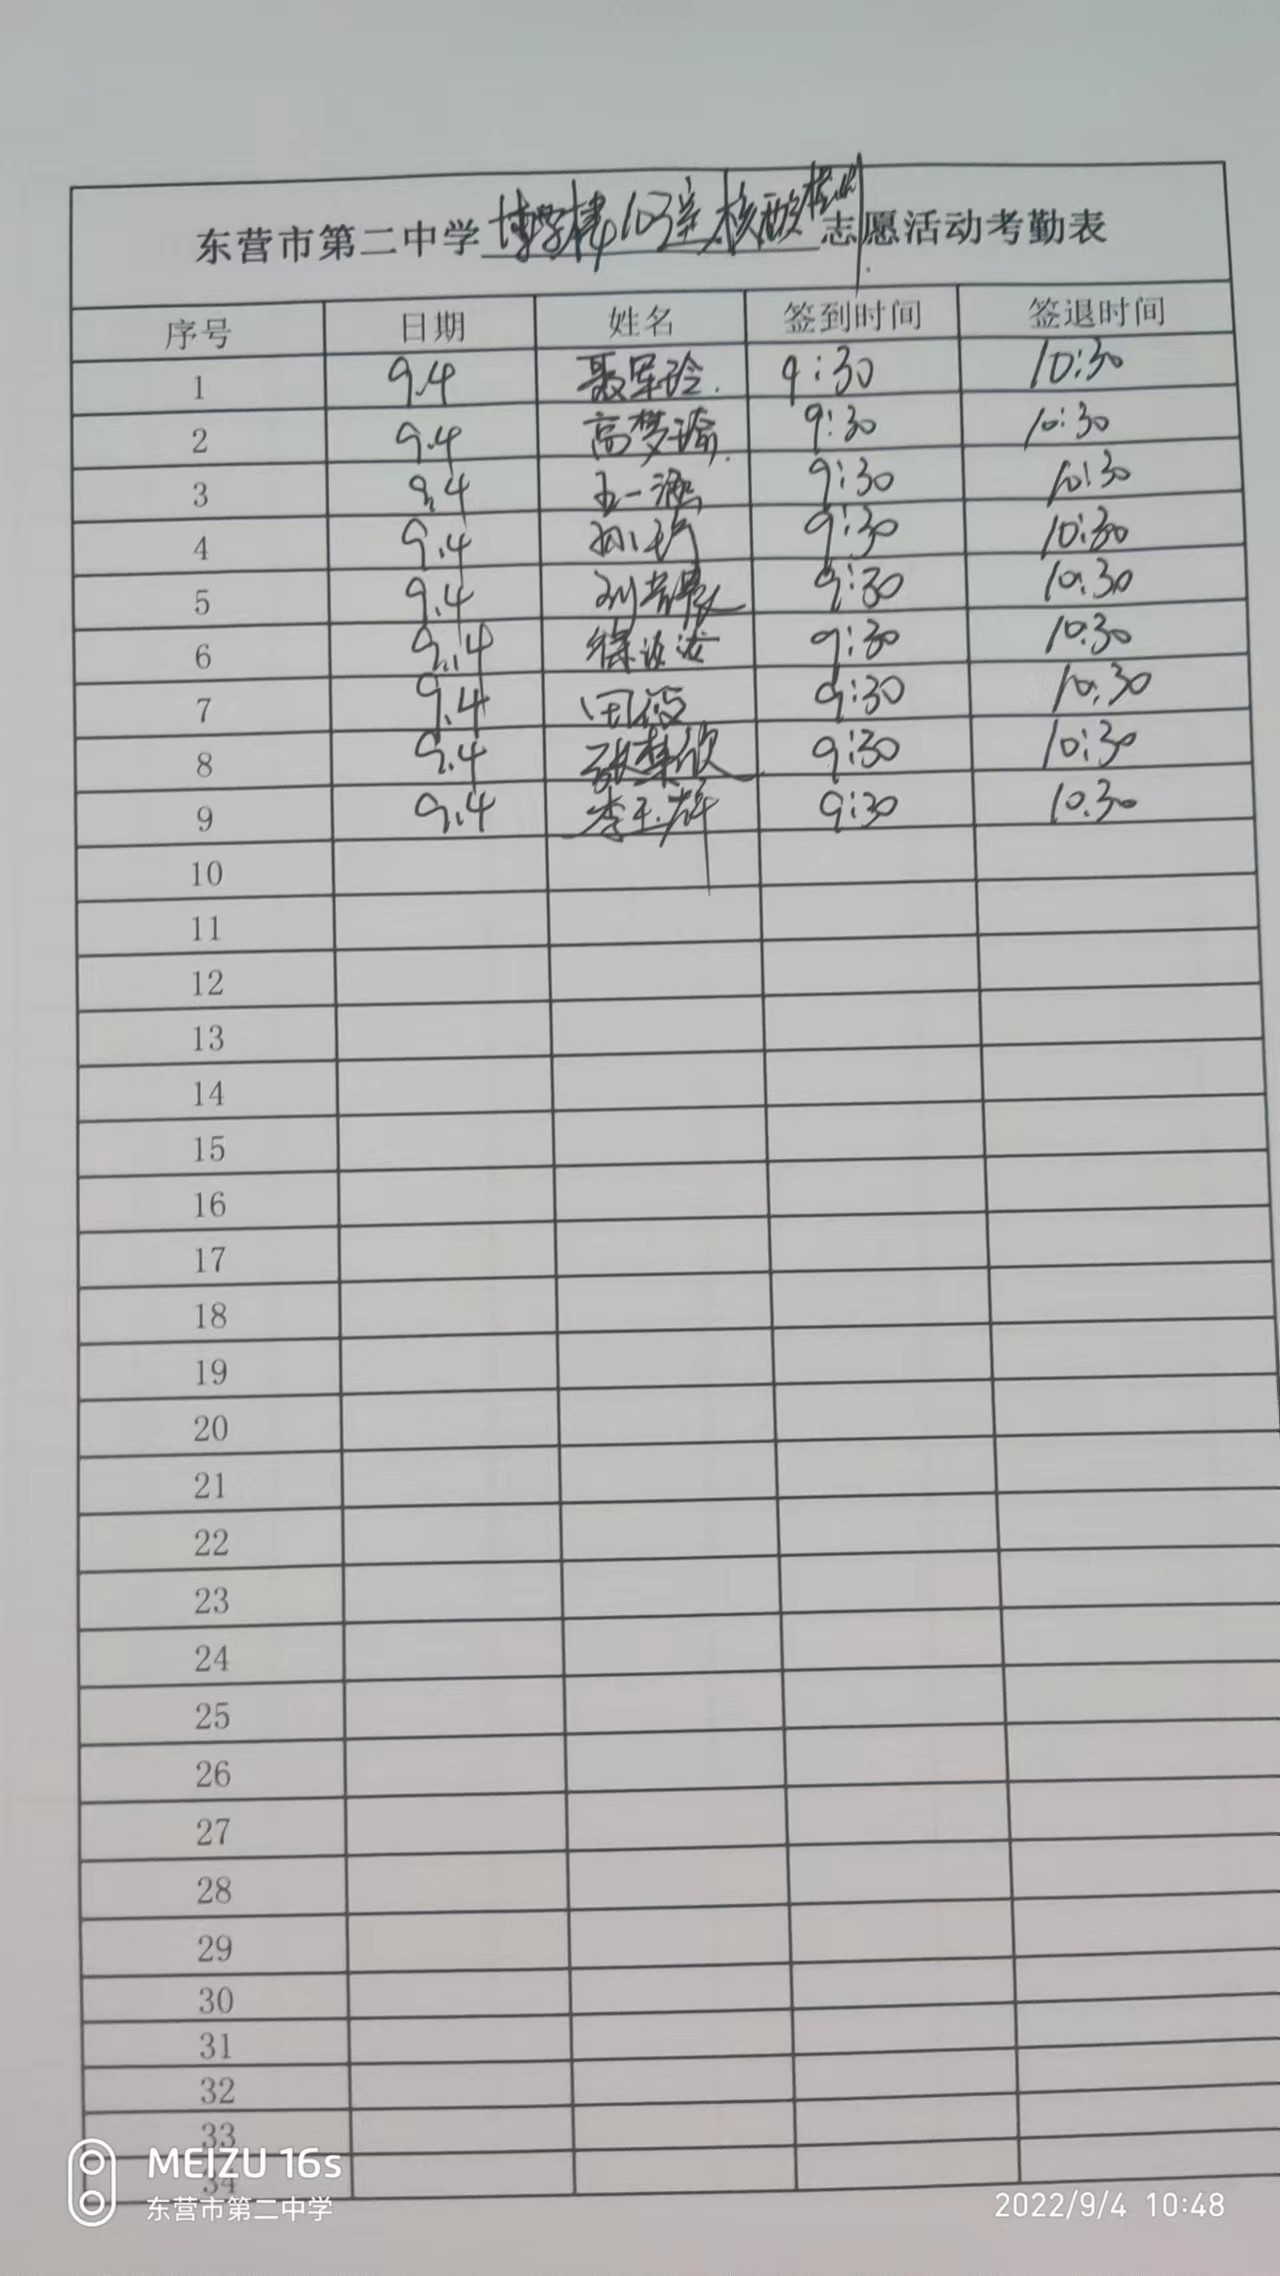 东营市第二中学博学楼1037室核酸检测志愿活动考勤表
序号 日期 姓名 签到时间 签退时间
1 9.4 聂军玲. 9:30 10:30
2 9.4 高梦瑜. 9:30 10:30
3 9.4 王一涵 9:30 10:30
4 9.4 9:30 10:30
5 9.4 9:30 10.30
6 9.4 9:30 10.30
7 9.4 9:30 10.30
8 9.4 9:30 10:30
9 9.4 李玉辉 9:30 10.30
10
11
12
13
14
15
16
17
18
19
20
21
22
23
24
25
26
27
28
29
30
31
32
33
34
MEIZU 16s
东营市第二中学
2022/9/4 10:48